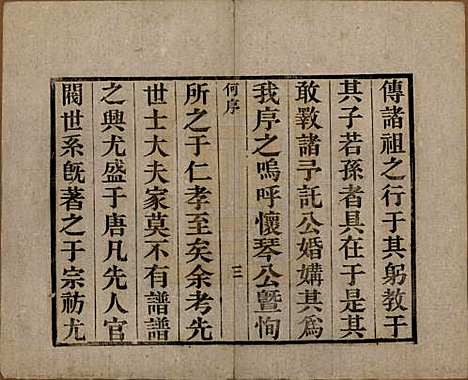 傳諸祖之行于其躬教于
其子若孫者具在于是其
敢斁諸予託公婚媾其爲
我序之嗚呼懷琴公曁恂
何序
三
所之于仁孝至矣余考先
世士大夫家莫不有譜譜
之興尤盛于唐凡先人官
閥世系旣著之于宗祊尤